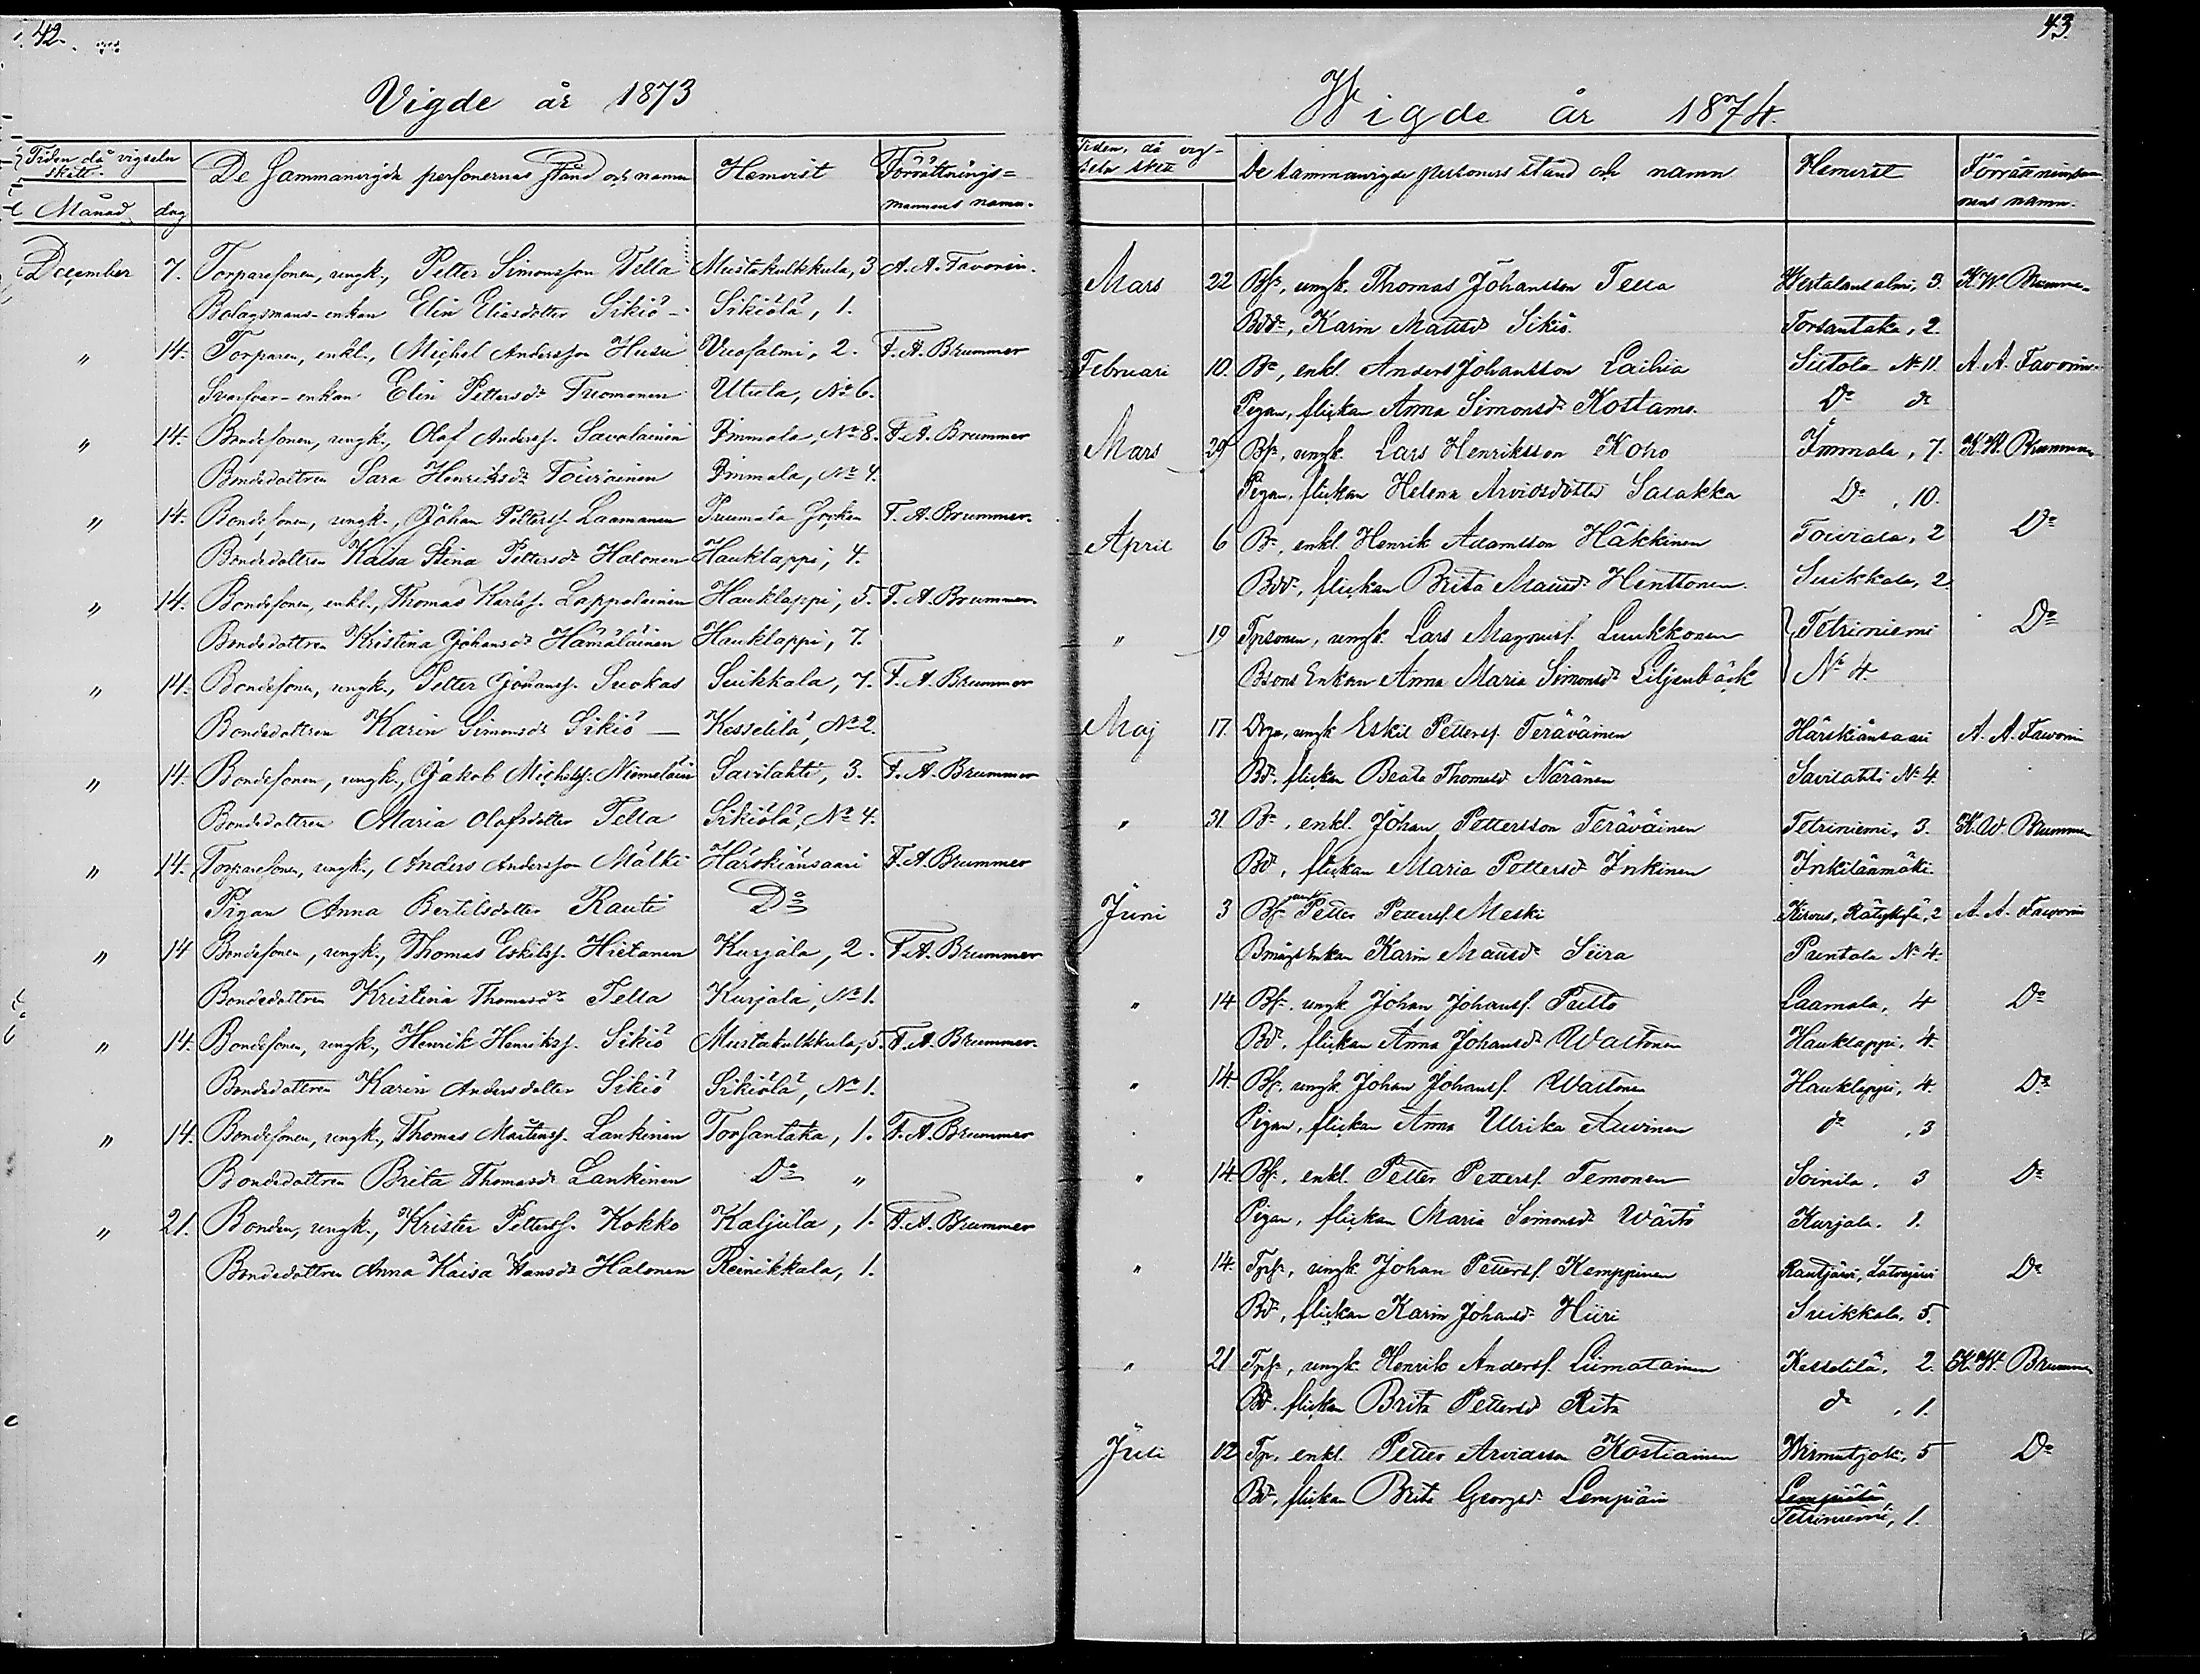 42.
Vigde år 1873
Tiden då vigseln skett. De Sammanvigda personernas stånd och namn Hemvist Förrättnings-
Månad dag mannens namn.
December 7. Torparesonen, ungk., Petter Simonsson Tella Mustakulkkula, 3 A. A. Favorin.
Bolagsmans-enkan Elin Eliasdotter Sikiö - Sikiölä, 1.
" 14. Torparen, enkl., Michel Andersson Husu Vuosalmi, 2. F. A. Brummer
Elin Pettersdr Tuomonen Utula, No 6.
" 14. Bondesonen, ungk., Olof Anderss. Savolainen Immala, No 8. F. A. Brummer
Bondedottren Sara Henriksdr Toiviainen Immala, No 4.
" 14. Bondesonen, ungk., Johan Petterss. Laamanen Puumala Socken F. A. Brummer.
Bondedottren Kaisa Stina Pettersdr Halonen Hauklappi, 4.
" 14. Bondesonen, enkl., Thomas Karlss. Lappalainen Hauklappi, 5. F. A. Brummer.
Bondedottren Kristina Johansdr Hämäläinen Hauklappi, 7.
" 14. Bondesonen, ungk., Petter Johanss. Suokas Suikkala, 7. F. A. Brummer
Bondedottren Karin Simonsdr Sikiö — Kesselilä, No 2.
" 14. Bondesonen, ungk., Jakob Michelss. Niemeläin Savilahti, 3. F. A. Brummer
Bondedottren Maria Olofsdotter Tella Sikiölä, No 4.
" 14. Torparesonen, ungk., Anders Andersson Mälki Härskiänsaari F. A. Brummer
Pigan Anna Bertilsdotter Rauti Do
" 14 Bondesonen, ungk., Thomas Eskilss. Hietanen Kurjala, 2. F. A. Brummer
Bondedottren Kristina Thomasdr Tella Kurjala, No 1.
" 14. Bondesonen, ungk., Henrik Henrikss. Sikiö Mustakulkkula, 5. F. A. Brummer.
Bondedottren Karin Andersdotter Sikiö Sikiölä, No 1.
" 14. Bondesonen, ungk., Thomas Mårtenss. Lankinen Torsantaka, 1. F. A. Brummer
Bondedottren Brita Thomasdr Lankinen Do "
" 21. Bonden, ungk., Krister Petterss. Kokko Kaljula, 1. F. A. Brummer
Bondedottren Anna Kaisa Hansdr Halonen Reinikkala, 1.
43.
Wigde år 1874.
Tiden, då vig- De sammanvigde personers stånd och namn Hemvist
seln sket nens namn.
Mars 22 Bs., ungk. Thomas Johansson Tella Wirtalansalmi, 3. K. W. Brummer
Bdr, Karin Mattsd. Sikiö. Torsantaka, 2.
Februari 10. Be, enkl. Anders Johansson Lailia Siitola No 11 A. A. Favorin.
Pigan, flickan Anna Simonsdr Kostamo. Do do
Mars 29 Bs., ungk. Lars Henriksson Koho Immala, 7. K. W. Brummer
Pigan, flickan Helena Arvidsdotter Sarakka Do, 10.
April 6 Be, enkl. Henrik Adamsson Häkkinen Toiviala, 2 Do
Bdr, flickan Brita Mattsdr Henttonen Suikkala, 2
" 19 Tpsonen, ungk. Lars Magnuss. Luukkonen Tetriniemi Do
Bsons Enkan Anna Maria Simonsdr Liljenbäck No 4.
Maj 17. Drgn, ungk Eskil Petterss. Teräväinen Härskiänsaari A. A. Favorin
Bdr, flickan Beata Thomasd. Näränen Savilahti No 4.
" 31. Be, enkl. Johan Pettersson Teräväinen Tetriniemi, 3. K. W. Brummer
Bdr, flickan Maria Pettersd. Inkinen Inkilänmäki.
Juni 3 Bs. ungk Petter Petterss. Meski Kirvus, 2 A. A. Favorin
Enkan Karin Mattsdr Siira Puntala No 4.
" 14 Bs. ungk Johan Johanss. Pulto Laamala, 4 Do
Bdr, flickan Anna Johansdr Waltonen Hauklappi, 4.
" 14. Bs. ungk Johan Johanss. Waltonen Hauklappi, 4. Do
Pigan, flickan Anna Ulrika Auvinen do, 3
" 14 Bs., enkl. Petter Petterss. Temonen Soinila, 3 Do
Pigan, flickan Maria Simonsdr Wärtö Kurjala. 1.
" 14. Tps., ungk Johan Petterss. Kemppinen Rautjärvi, Latvajärvi Do
Bdr, flickan Karin Johansd. Hiiri Suikkala. 5.
" 21 Tps., ungk Henrik Anderss. Liimatainen Kesselilä, 2. K. W. Brummer
Bdr. flickan Brita Pettersdr Rita do, 1.
Juli 12 Tp. enkl. Petter Arvidsson Kostiainen Wirmutjoki, 5 Do
Bdr, flickan Brita Georgsd. Lempiäin Lempiälä
Tetriniemi, 1.